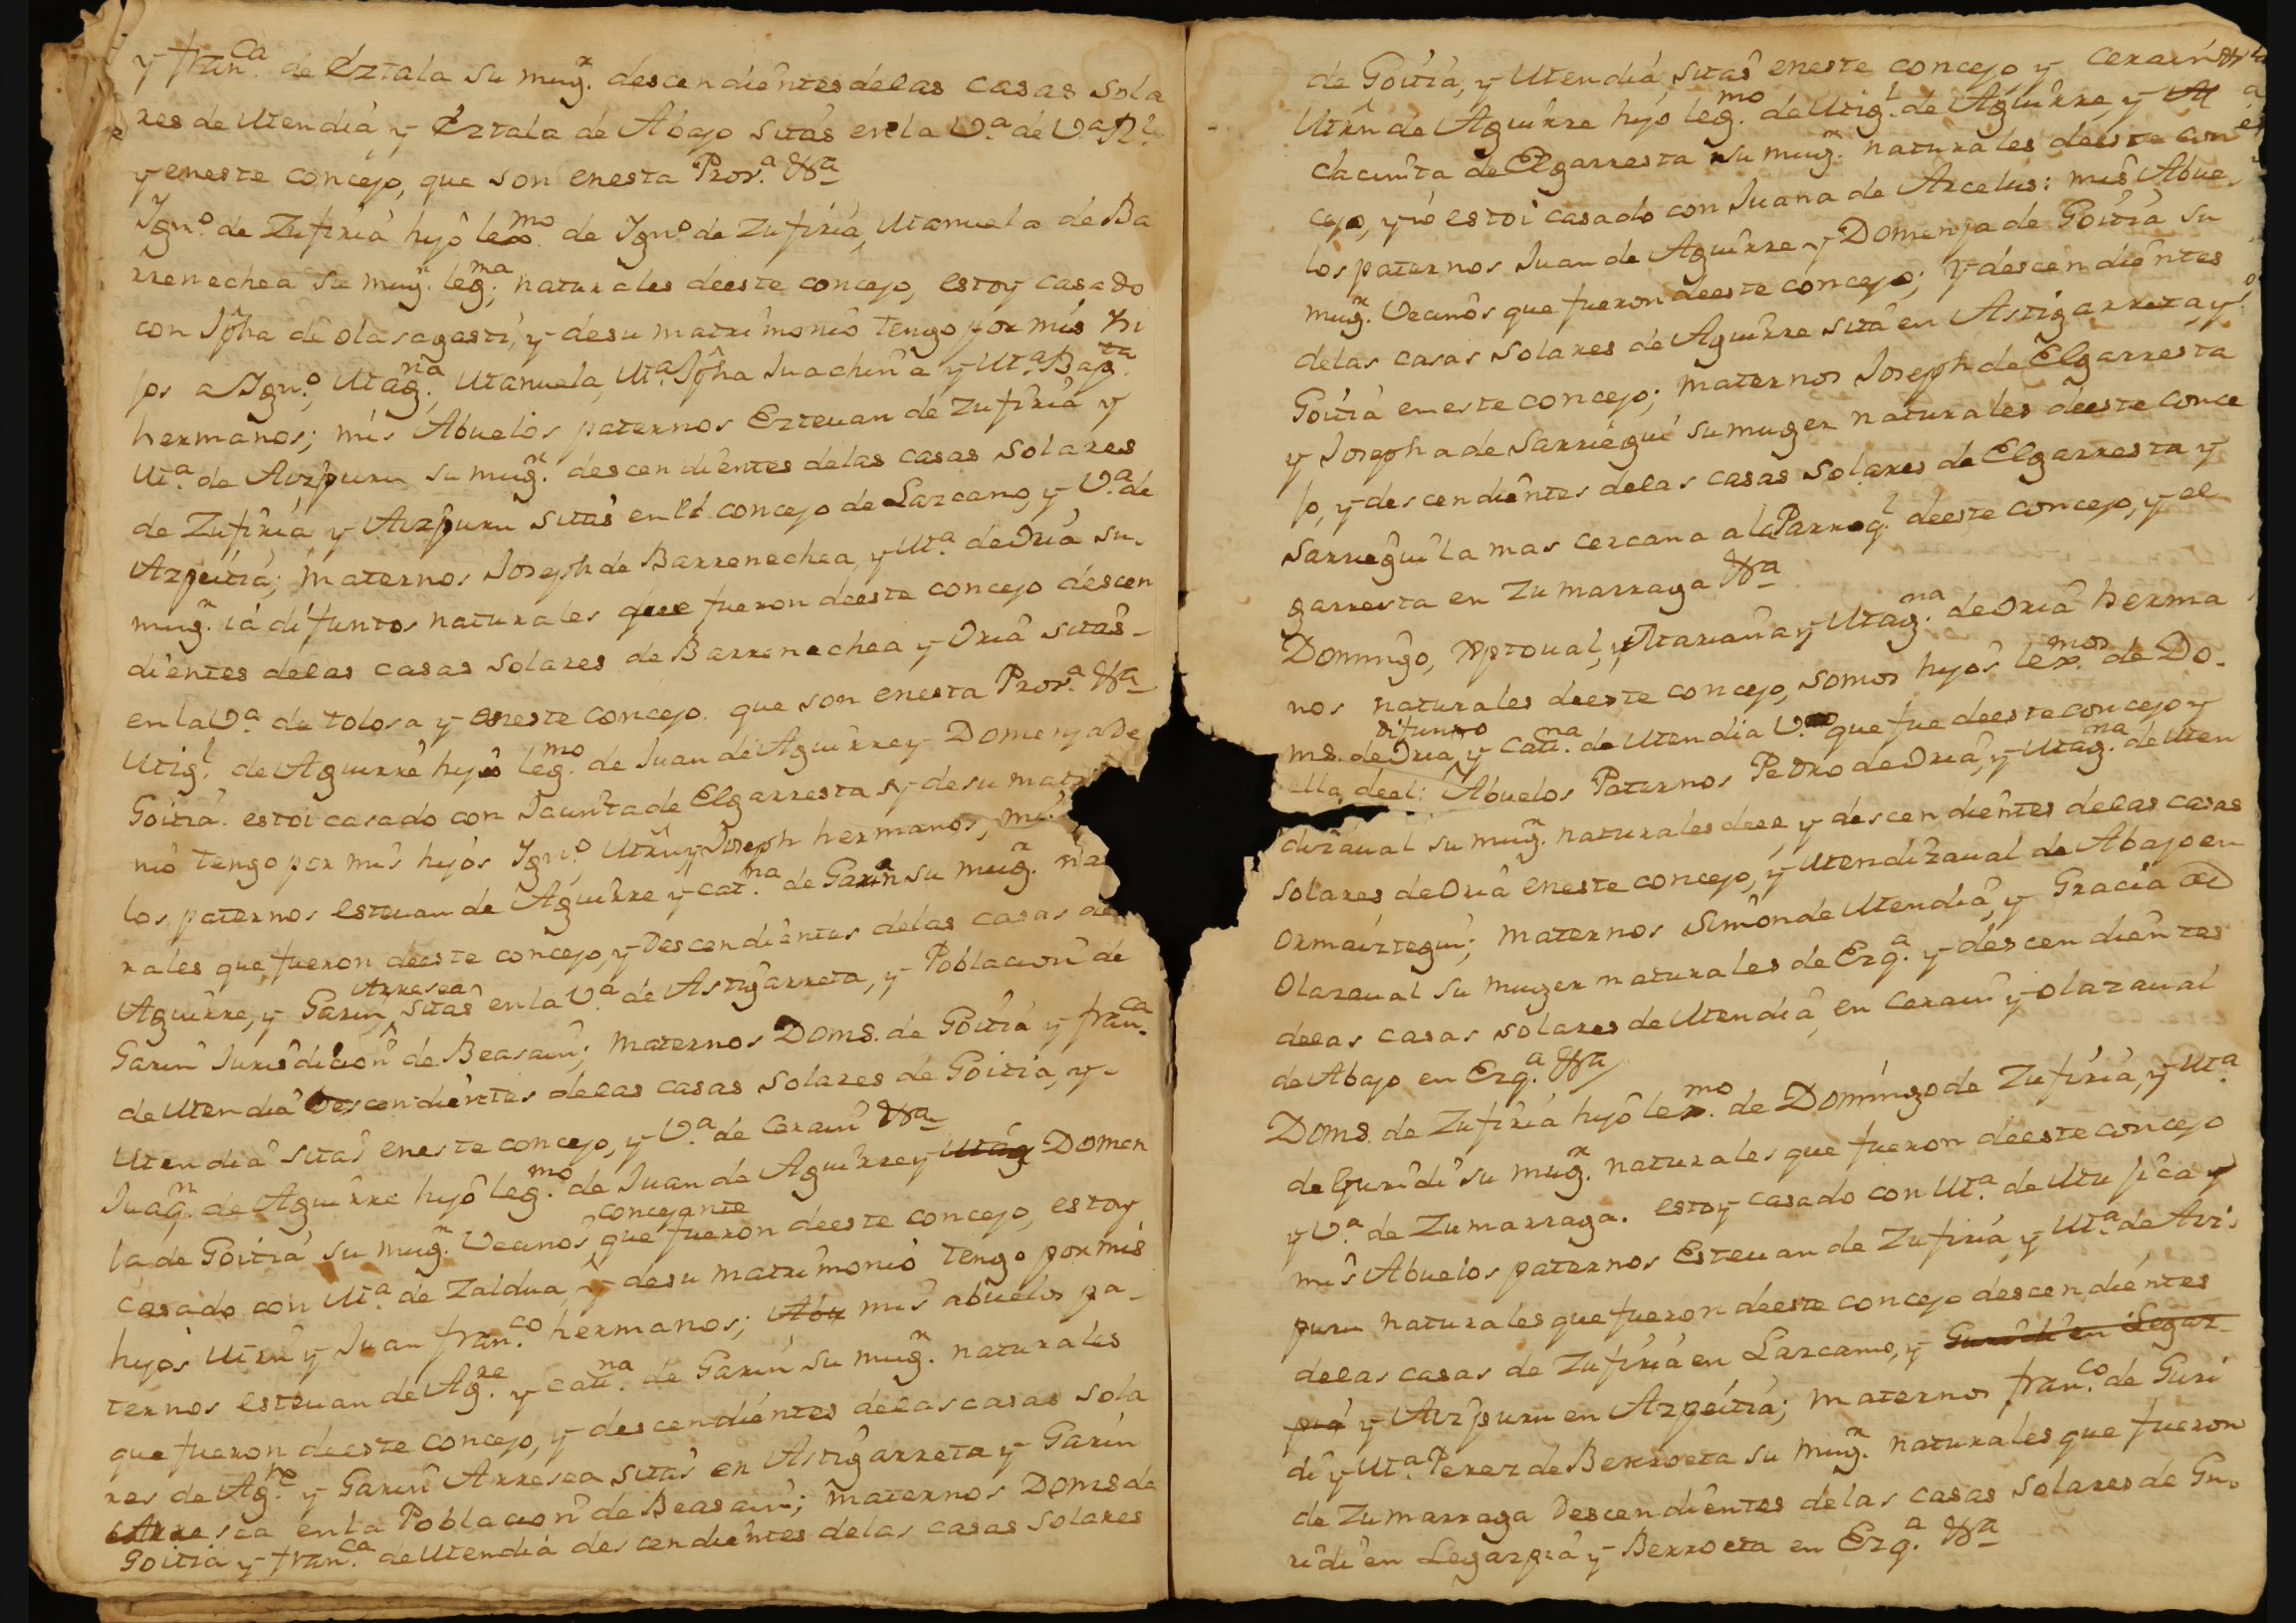 y fran.ca de Eztala su mug.r descendientes de las casas sola
res de Mendia y Eztala de Abajo sitas en la V.a de V.a R.l
y en este concejo, que son en esta Prov.a &a
Ign.o de Zufiria hijo lex.mo de Ign.o de Zufiria, Manuela de Ba
rrenechea su mug.r leg.ma, naturales deeste concejo, estoy casado
con Jpha de olasagasti, y de su matrimonio tengo por mis hi
jos a Ign.o, Mag.na, Manuela, M.a Jpha Juachina y M.a Bap.ta
hermanos; mis Abuelos paternos Estevan de Zufiria y
M.a de Aizpuru su mug.r descendientes de las casas solares
de Zufiria y Aizpuru sitas en el concejo de Lazcano, y V.a de
Azpeitia; Maternos Joseph de Barrenechea, y M.a de Oria su
mug.r ia difuntos naturales que fueron deeste concejo descen
dientes de las casas solares de Barrenechea y Oria sitas
en la V.a de tolosa y en este concejo. que son en esta Prov.a &a
Mig.l de Aguirre hijo leg.mo de Juan de Aguirre y Domenja de
Goitia. estoi casado con Jacinta de Elgarresta y de su matri
nio tengo por mis hijos Ign.o, Mrn y Joseph hermanos,
los paternos estevan de Aguirre y cat.na de Garin su mug.r na
rales que fueron deeste concejo, y Descendientes de las casas de
Aguirre, y Garin Arresea sitas en la V.a de Astigarreta, y Poblacion de
Garin Jurisdicion de Beasain; Maternos Doms. de Goitia y fran.ca
de Mendia Descendientes de las casas solares de Goitia, y
Mendia sitas en este concejo, y V.a de Cerain &a
Juaq.n de Aguirre hijo leg.mo de Juan de Aguirre y Mag Domen
la de Goitia su mug.r Vecinos concejante que fueron deeste concejo, estoy
casado con M.a de Zaldua, y de su matrimonio tengo por mis
hijos Mrn y Juan fran.co hermanos; Abu mis abuelos pa
ternos estevan de Ag.re y cat.na de Garin su mug.r naturales
que fueron deeste concejo, y descendientes de las casas sola
res de Ag.re y Garin Arresea sitas en Astigarreta y Garin
Arresea en la Poblacion de Beasain; Maternos Doms de
Goitia y fran.ca de Mendia descendientes de las casas solares
de Goitia, y Mendia, sitas en este concejo y Cerain &a
Mrn de Aguirre hijo leg.mo de Mig.l de Aguirre, y
clacinta de Elgarresta su mug.r naturales deeste con
cejo, y io estoi casado con Juana de Arcelus: mis Abue
los paternos Juan de Aguirre y Domenja de Goitia su
mug.r Vecinos que fueron deeste concejo; y descendientes
de las casas solares de Aguirre sita en Astigarreta, y
Goitia en este concejo; Maternos Joseph de Elgarresta
y Josepha de Sarriegui su muger naturales deeste conce
jo, y descendientes de las casas solares de Elgarresta y
Sarriegui la mas cercana a la Parroq.l deeste concejo, y el
garresta en Zumarraga &a
Domingo, Xptoual, y Mariana y Mag.na de Oria herma
nos naturales deeste concejo, somos hijos lex.mos de Do
ms. de Oria difunto y Cat.na de Mendia V.  que fue deeste concejo y
ella deel: Abuelos Paternos Pedro de Oria, y Mag.na de Men
dizaual su mug.r naturales deel, y descendientes de las casas
solares de Oria en este concejo, y Mendizaual de Abajo en
Ormaiztegui; Maternos Simon de Mendia, y Gracia de
Olazaual su muger naturales de Ezq.a y descendientes
de las casas solares de Mendia, en Cerain y olazaual
de Abajo en Ezq.a &a
Doms. de Zufiria hijo lex.mo de Domingo de Zufiria, y M.a
de Guridi su mug.r naturales que fueron deeste concejo
y V.a de Zumarraga. estoy casado con M.a de Mujica y
mis Abuelos paternos Estevan de Zufiria y M.a de Aiz
puru naturales que fueron deeste concejo descendientes
de las casas de Zufiria en Lazcano, y Guridi en Legaz
pia y Aizpuru en Azpeitia; Maternos fran.co de Guri
di y M.a Perez de Berroeta su mug.r naturales que fueron
de Zumarraga Descendientes de las casas solares de Gu
ridi en Legazpia y Berroeta en Ezq.a &a